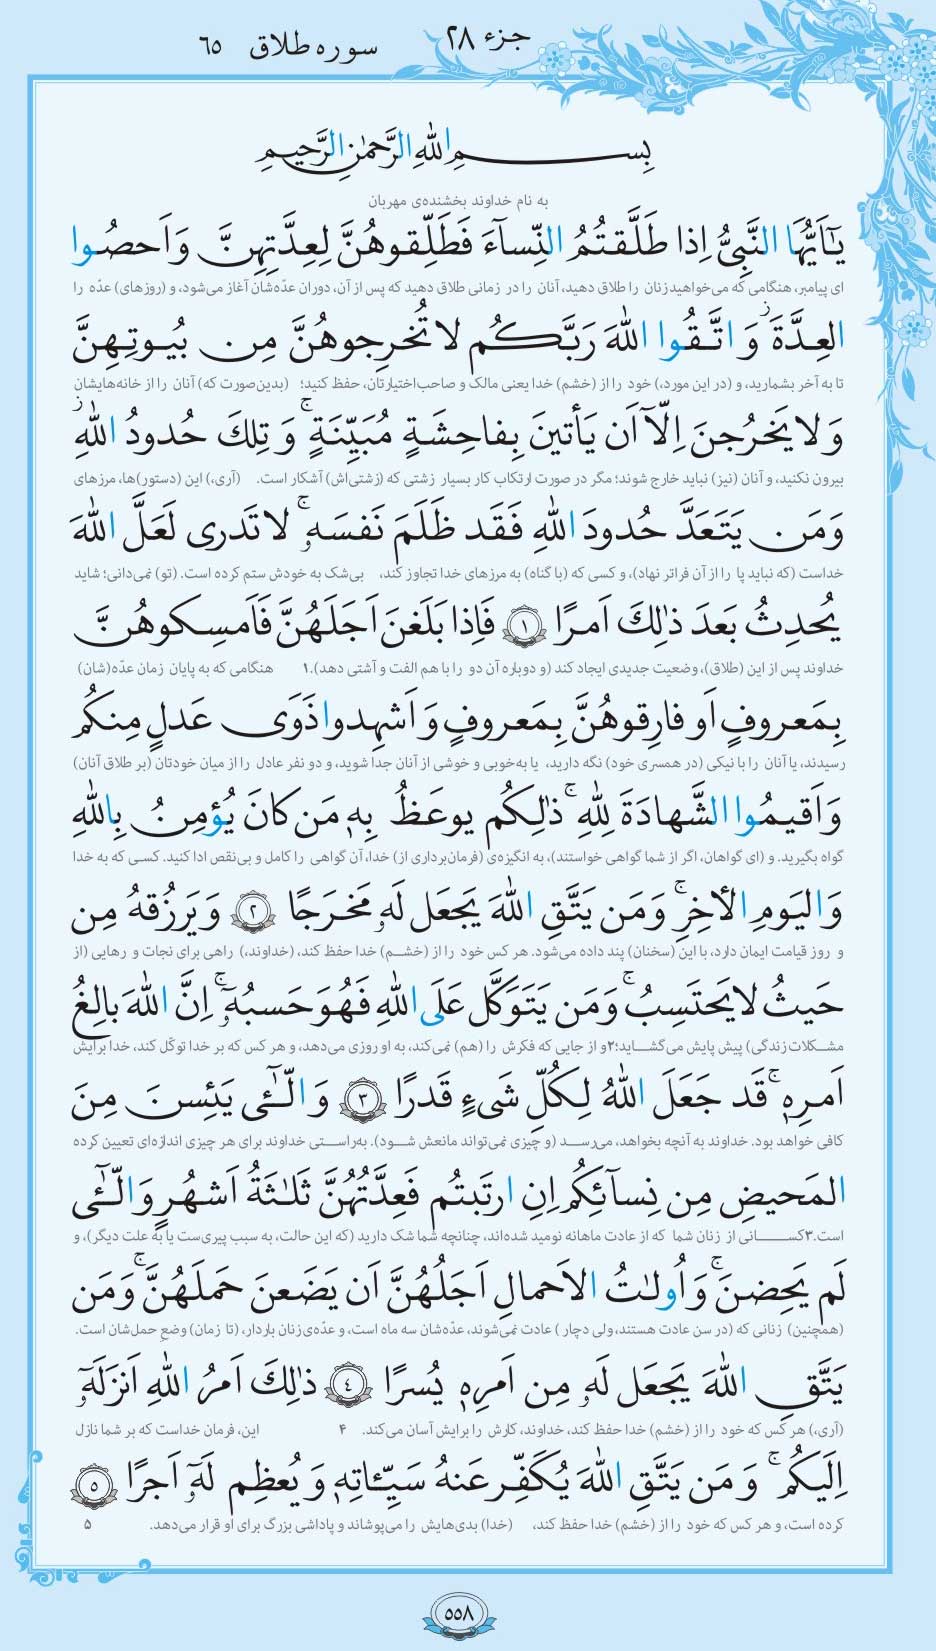 جزء ۲۸
سوره طلاق ۶۵
بِسمِ اللهِ الرَّحمٰنِ الرَّحيمِ
به نام خداوند بخشنده‌ی مهربان
يٰٓاَيُّهَا النَّبِيُّ اِذا طَلَّقتُمُ النِّسآءَ فَطَلِّقوهُنَّ لِعِدَّتِهِنَّ وَاَحصُوا
ای پیامبر، هنگامی که می‌خواهید زنان را طلاق دهید، آنان را در زمانی طلاق دهید که پس از آن، دوران عدّه‌شان آغاز می‌شود، و (روزهای) عدّه را
العِدَّةَ ۖ وَاتَّقُوا اللهَ رَبَّكُم لا تُخرِجوهُنَّ مِن بُيوتِهِنَّ
تا به آخر بشمارید، و (در این مورد،) خود را از (خشم) خدا یعنی مالک و صاحب‌اختیارتان، حفظ کنید؛ (بدین‌صورت که) آنان را از خانه‌هایشان
وَلا يَخرُجنَ اِلّآ اَن يَأتينَ بِفاحِشَةٍ مُبَيِّنَةٍ ۚ وَتِلكَ حُدودُ اللهِ ۚ
بیرون نکنید، و آنان (نیز) نباید خارج شوند؛ مگر در صورت ارتکاب کار بسیار زشتی که (زشتی‌اش) آشکار است. (آری،) این (دستور)ها، مرزهای
وَمَن يَتَعَدَّ حُدودَ اللهِ فَقَد ظَلَمَ نَفسَهٗ ۚ لا تَدرى لَعَلَّ اللهَ
خداست (که نباید پا را از آن فراتر نهاد)، و کسی که (با گناه) به مرزهای خدا تجاوز کند، بی‌شک به خودش ستم کرده است. (تو) نمی‌دانی؛ شاید
يُحدِثُ بَعدَ ذٰلِكَ اَمرًا ۱ فَاِذا بَلَغنَ اَجَلَهُنَّ فَاَمسِكوهُنَّ
خداوند پس از این (طلاق)، وضعیت جدیدی ایجاد کند (و دوباره آن دو را با هم الفت و آشتی دهد).۱ هنگامی که به پایان زمان عدّه(شان)
بِمَعروفٍ اَو فارِقوهُنَّ بِمَعروفٍ وَاَشهِدوا ذَوَى عَدلٍ مِنكُم
رسیدند، یا آنان را با نیکی (در همسری خود) نگه دارید، یا به‌خوبی و خوشی از آنان جدا شوید، و دو نفر عادل را از میان خودتان (بر طلاق آنان)
وَاَقيمُوا الشَّهادَةَ لِلّٰهِ ۚ ذٰلِكُم يوعَظُ بِهٖ مَن كانَ يُؤمِنُ بِاللهِ
گواه بگیرید. و (ای گواهان، اگر از شما گواهی خواستند)، به انگیزه‌ی (فرمان‌برداری از) خدا، آن گواهی را کامل و بی‌نقص ادا کنید. کسی که به خدا
وَاليَومِ الأخِرِ ۚ وَمَن يَتَّقِ اللهَ يَجعَل لَهٗ مَخرَجًا ۲ وَيَرزُقهُ مِن
و روز قیامت ایمان دارد، با این (سخنان) پند داده می‌شود. هر کس خود را از (خشم) خدا حفظ کند، (خداوند،) راهی برای نجات و رهایی (از
حَيثُ لا يَحتَسِبُ ۚ وَمَن يَتَوَكَّل عَلَى اللهِ فَهُوَ حَسبُهٗٓ ۚ اِنَّ اللهَ بالِغُ
مشکلات زندگی) پیش پایش می‌گشاید؛۲ و از جایی که فکرش را (هم) نمی‌کند، به او روزی می‌دهد، و هر کس که بر خدا توکّل کند، خدا برایش
اَمرِهٖ ۚ قَد جَعَلَ اللهُ لِكُلِّ شَىءٍ قَدرًا ۳ وَالّٰٓـئى يَئِسنَ مِنَ
کافی خواهد بود. خداوند به آنچه بخواهد، می‌رسد (و چیزی نمی‌تواند مانعش شود). به‌راستی خداوند برای هر چیزی اندازه‌ای تعیین کرده
المَحيضِ مِن نِسآئِكُم اِنِ ارتَبتُم فَعِدَّتُهُنَّ ثَلٰثَةُ اَشهُرٍ وَالّٰٓـئى
است.۳ کسانی از زنان شما که از عادت ماهانه نومید شده‌اند، چنانچه شما شک دارید (که این حالت، به سبب پیری‌ست یا به علت دیگر)، و
لَم يَحِضنَ ۚ وَاُولٰتُ الاَحمالِ اَجَلُهُنَّ اَن يَضَعنَ حَملَهُنَّ ۚ وَمَن
(همچنین) زنانی که (در سن عادت هستند، ولی دچار) عادت نمی‌شوند، عدّه‌شان سه ماه است، و عدّه‌ی زنان باردار، (تا زمان) وضع حمل‌شان است.
يَتَّقِ اللهَ يَجعَل لَهٗ مِن اَمرِهٖ يُسرًا ۴ ذٰلِكَ اَمرُ اللهِ اَنزَلَهٗٓ
(آری،) هر کس که خود را از (خشم) خدا حفظ کند، خداوند، کارش را برایش آسان می‌کند. ۴ این، فرمان خداست که بر شما نازل
اِلَيكُم ۚ وَمَن يَتَّقِ اللهَ يُكَفِّر عَنهُ سَيِّـٔاتِهٖ وَيُعظِم لَهٗٓ اَجرًا ۵
کرده است، و هر کس که خود را از (خشم) خدا حفظ کند، (خدا) بدی‌هایش را می‌پوشاند و پاداشی بزرگ برای او قرار می‌دهد. ۵
۵۵۸